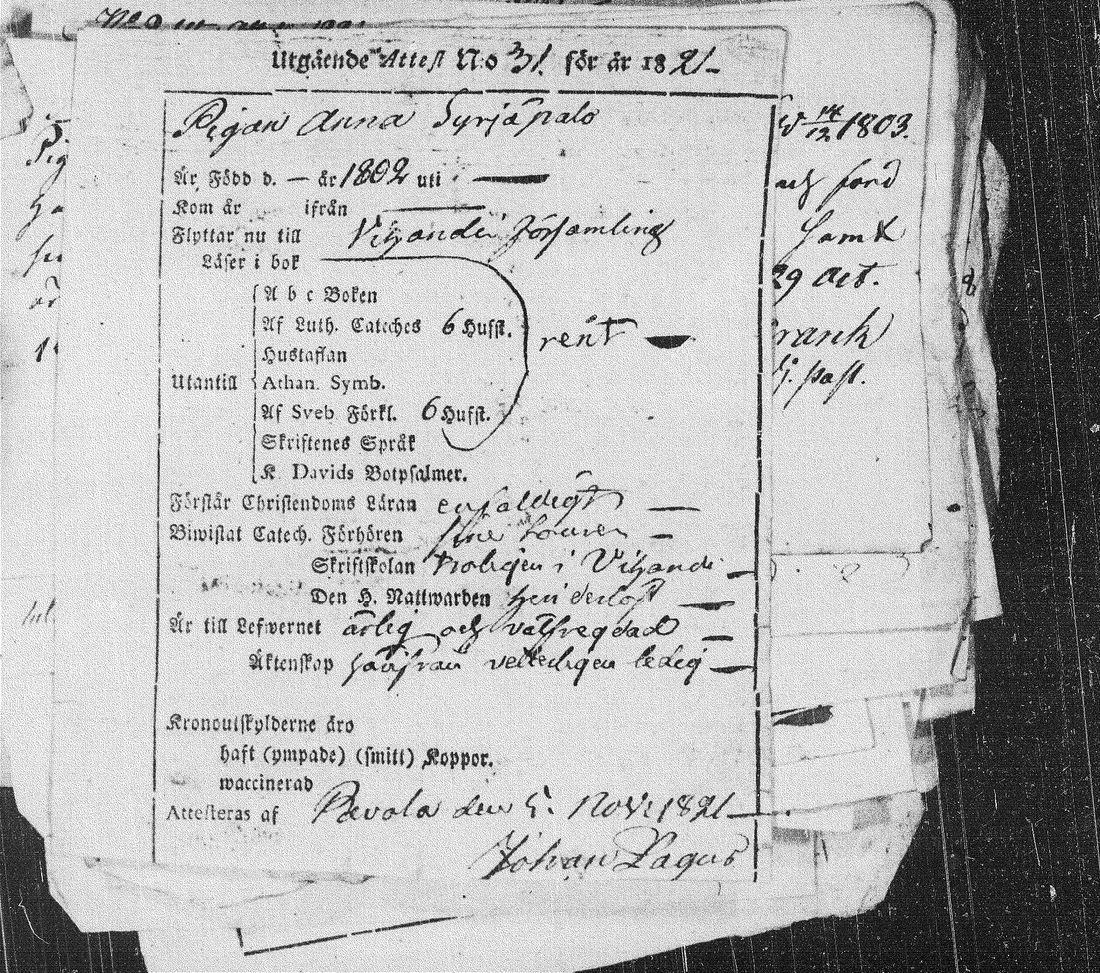 Utgående Attest No 31. för år 1821
Pigan Anna Syrjäpalo
Är Född d. — år 1802 uti
Kom år ifrån
Flyttar nu till Vihandi Församling
Läser i bok
A b c Boken
Af Luth. Cateches 6 Hufst.
rent
Hustaflan
Utantill Athan. Symb.
Af Sveb. Förkl. 6 Hufst.
Skriftenes Språk
K. Davids Botpsalmer.
Förstår Christendoms Läran enfaldigt
Biwistat Catech. Förhören
Skriftskolan troligen i Vihandi
Den H. Nattwarden
Är till Lefwernet ärlig och välfregdad
Äktenskap ledig
Kronoutskylderne äro
haft (ympade) (smitt) Koppor.
waccinerad
Attesteras af Pavola den 5. Nov. 1821
Johan Lagus
14/12 1803.
och ford
29 Oct.
past.